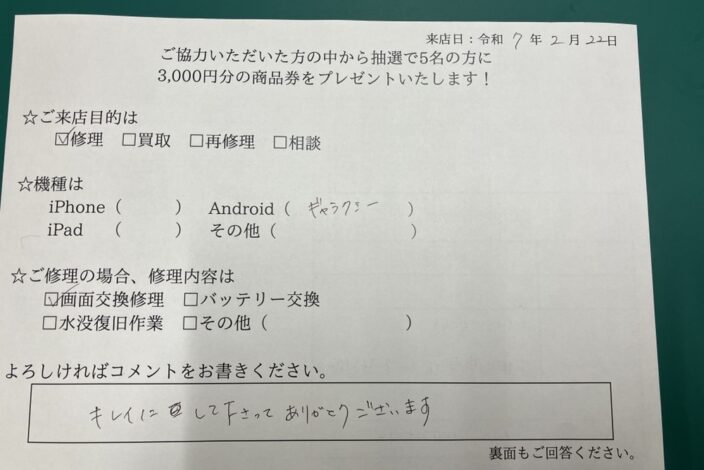 来店日：令和 7 年 2 月 22日
ご協力いただいた方の中から抽選で5名の方に
3,000円分の商品券をプレゼントいたします！
☆ご来店目的は
☑修理 □買取 □再修理 □相談
☆機種は
iPhone（ ） Android（ ギャラクシー ）
iPad （ ） その他（ ）
☆ご修理の場合、修理内容は
☑画面交換修理 □バッテリー交換
□水没復旧作業 □その他（ ）
よろしければコメントをお書きください。
キレイに直して下さってありがとうございます
裏面もご回答ください。